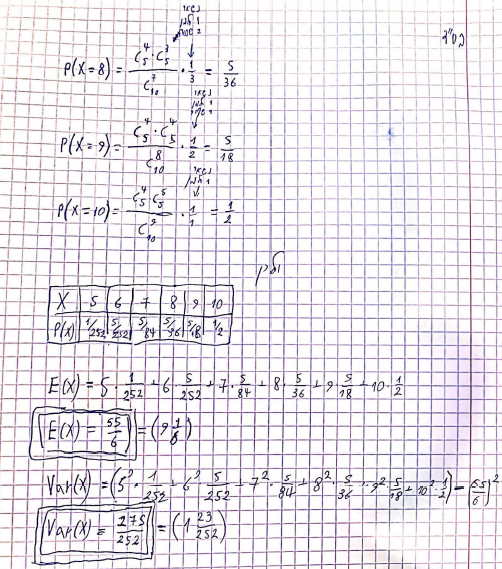 בס"ד
P(X=8) = \frac{C_5^4 \cdot C_5^3}{C_{10}^7} \cdot \frac{1}{3} = \frac{5}{36}
P(X=9) = \frac{C_5^4 \cdot C_5^4}{C_{10}^8} \cdot \frac{1}{2} = \frac{5}{18}
P(X=10) = \frac{C_5^4 C_5^5}{C_{10}^9} \cdot \frac{1}{1} = \frac{1}{2}
X 5 6 7 8 9 10
P(X) 1/252 5/252 5/84 5/36 5/18 1/2
E(X) = 5 \cdot \frac{1}{252} + 6 \cdot \frac{5}{252} + 7 \cdot \frac{5}{84} + 8 \cdot \frac{5}{36} + 9 \cdot \frac{5}{18} + 10 \cdot \frac{1}{2}
E(X) = \frac{55}{6} = (9\frac{1}{6})
Var(X) = (5^2 \cdot \frac{1}{252} + 6^2 \cdot \frac{5}{252} + 7^2 \cdot \frac{5}{84} + 8^2 \cdot \frac{5}{36} + 9^2 \cdot \frac{5}{18} + 10^2 \cdot \frac{1}{2}) - (\frac{55}{6})^2
Var(X) = \frac{275}{252} = (1\frac{23}{252})